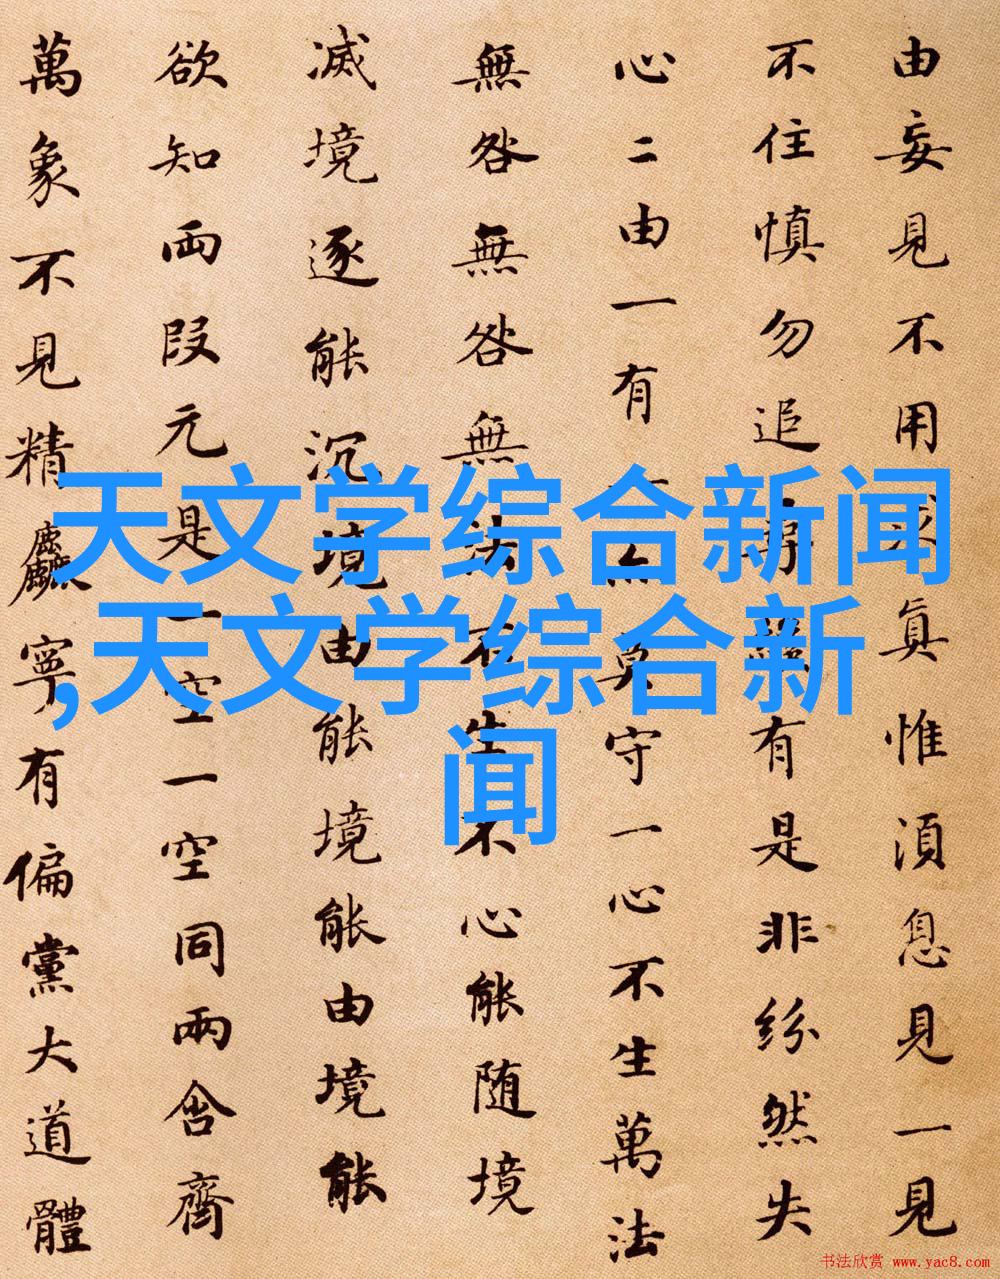 由妄見不用求真惟須息見一見
不住慎勿追尋纔有是非紛然失
心二由一有一亦莫守一心不生萬法
無咎無咎無法不生不心能随境
滅境逐能沉境由能境能由境能
欲知兩段元是一空一空同兩含齊
萬象不見精麤寧有偏黨大道體
天文学综合新闻
,天文学综合新
闻
书法欣赏 www.yac8.com